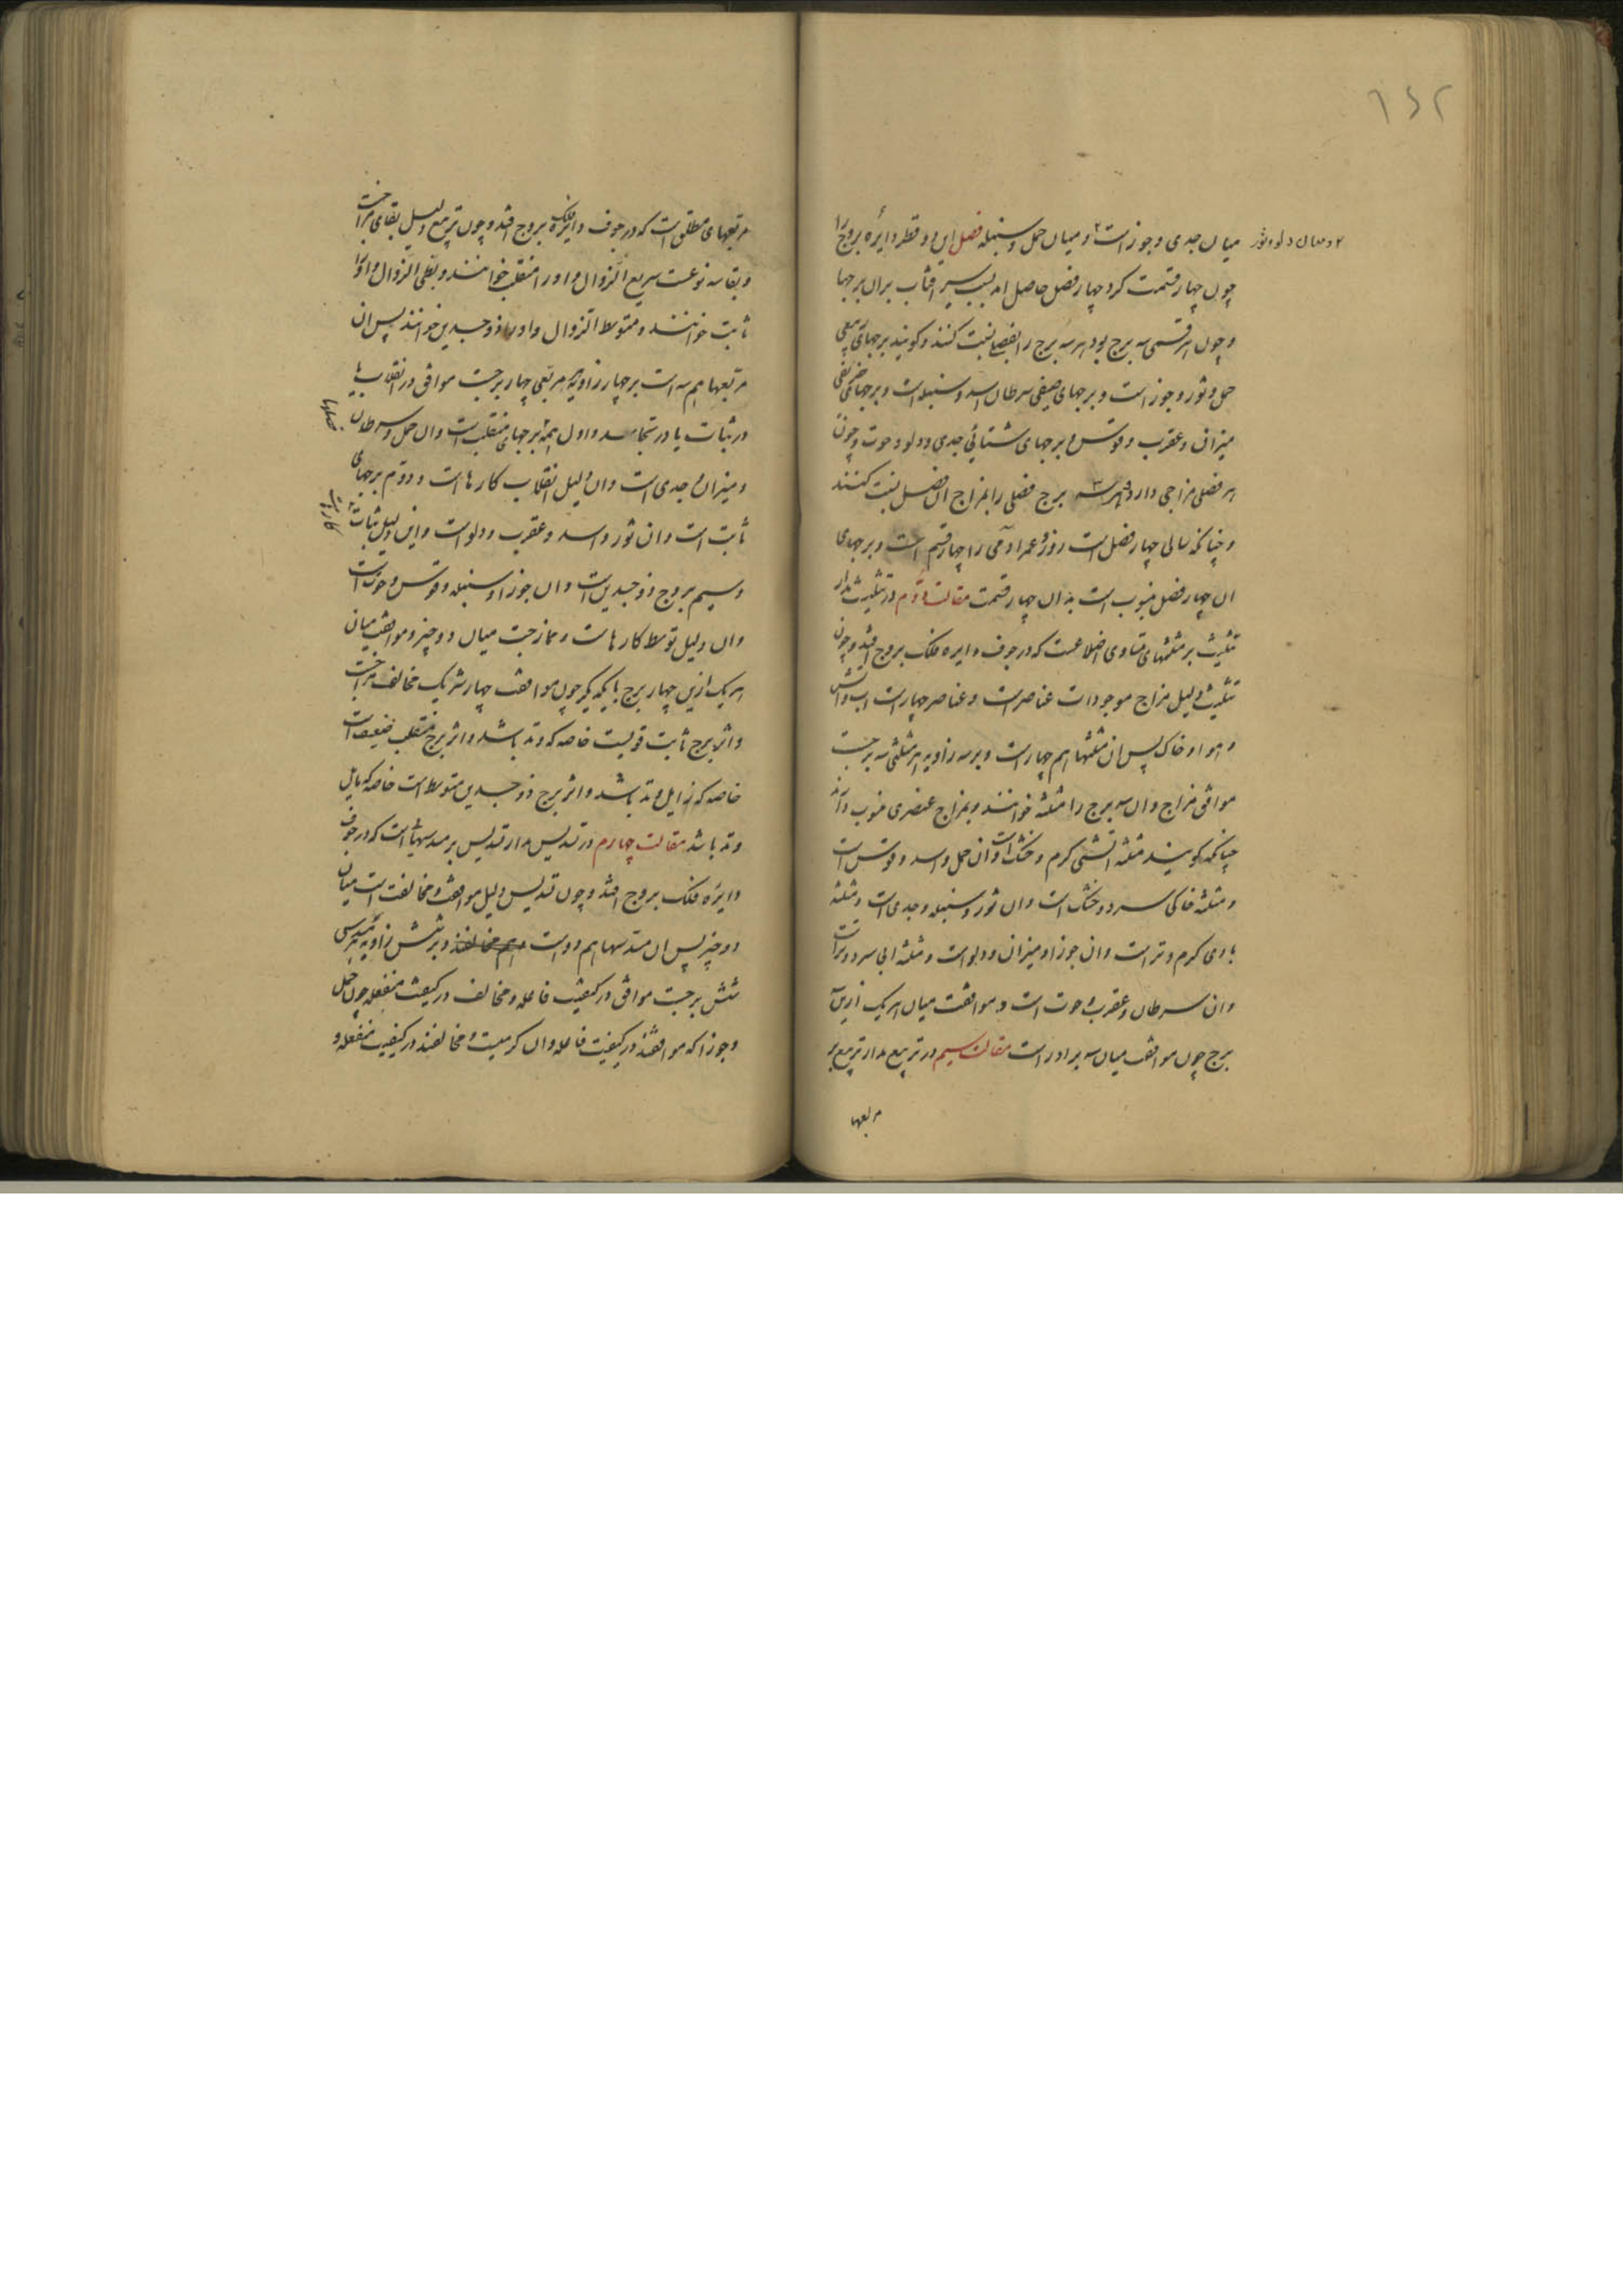 ۱۶۲
میان جدی و جوزاست۲ و میان حمل و سنبله فصل این دو قطر دایرهٔ بروج را
۲ و میان دلو و ثور
چون چهار قسمت کرد چهار فصل حاصل امد بسبب سیر افتاب بران برجها
و چون هر قسمی سه برج بود هر سه برج را بفصلی نسبت کنند و کویند برجهای ربیعی
حمل و ثور و جوزاست و برجهای صیفی سرطان اسد و سنبله است و برجهای خریفی
میزان و عقرب و قوس و برجهای شتائی جدی و دلو و حوت و چون
هر فصلی مزاجی دارد هر سه برج فصلی را بمزاج ان فصل نسبت کنند
و چنانکه سالی چهار فصل است روز و عمر ادمی را چهار قسم است و برجهای
ان چهار فصل منسوب است بدان چهار قسمت مقالت دوم در تثلیث مدار
تثلیث بر مثلثهای متساوی اضلاعست که در جوف دایره فلک بروج افتد و چون
تثلیث دلیل مزاج موجودات عناصرست و عناصر چهارست اب و اتش
و هوا و خاک پس ان مثلثها هم چهارست و بر سه زاویه هر مثلثی سه برجست
موافق مزاج و ان سه برج را مثلثه خوانند و بمزاج عنصری منسوب دارند
چنانکه کویند مثلثه اتشی کرم و خشک است و ان حمل و اسد و قوس است
و مثلثه خاکی سرد و خشک است و ان ثور و سنبله و جدی است و مثلثه
بادی کرم و تر است و ان جوزا و میزان و دلو است و مثلثه ابی سرد و تر است
و ان سرطان و عقرب و حوت است و موافقت میان هر یک ازین
برج چون موافقت میان سه برادر است مقالت سیم در تربیع مدار تربیع بر
مربعها
مربعهای مطلق است که در جوف دایرهٔ فلک بروج افتد و چون تربیع دلیل بقای مزاجست
و بقا سه نوعست سریع الزوال و او را منقلب خوانند و بطی الزوال و او را
ثابت خوانند و متوسط الزوال و او را ذو جسدین خوانند پس ان
مربعها هم سه است بر چهار زاویه هر مربعی چهار برجست موافق در انقلاب یا
در ثبات یا در تجاسد و اول همه برجهای منقلب است و ان حمل و سرطان
و میزان و جدی است و ان دلیل انقلاب کارها است و دوم برجهای
ثابت است و ان ثور و اسد و عقرب و دلو است و این دلیل ثبات
کارها
و سیم بروج ذو جسدین است و ان جوزا و سنبله و قوس و حوت است
و ان دلیل توسط کارهاست و ممازجت میان دو چیز و موافقت میان
هر یک ازین چهار برج با یکدیکر چون موافقت چهار شریک مخالف مزاجست
و اثر برج ثابت قویست خاصه که وتد باشد و اثر برج منقلب ضعیف است
خاصه که زایل وتد باشد و اثر برج ذو جسدین متوسط است خاصه که مایل
وتد باشد مقالت چهارم در تسدیس مدار تسدیس بر مسدسهاست که در جوف
دایره فلک بروج افتد و چون تسدیس دلیل موافقت و مخالفت است میان
دو چیز پس ان مسدسها هم دوست و بر شش زاویه هر مسدسی
شش برجست موافق در کیفیت فاعله و مخالف در کیفیت منفعله چون حمل
و جوزا که موافقند در کیفیت فاعله و ان کرمیست و مخالفند در کیفیت منفعله و